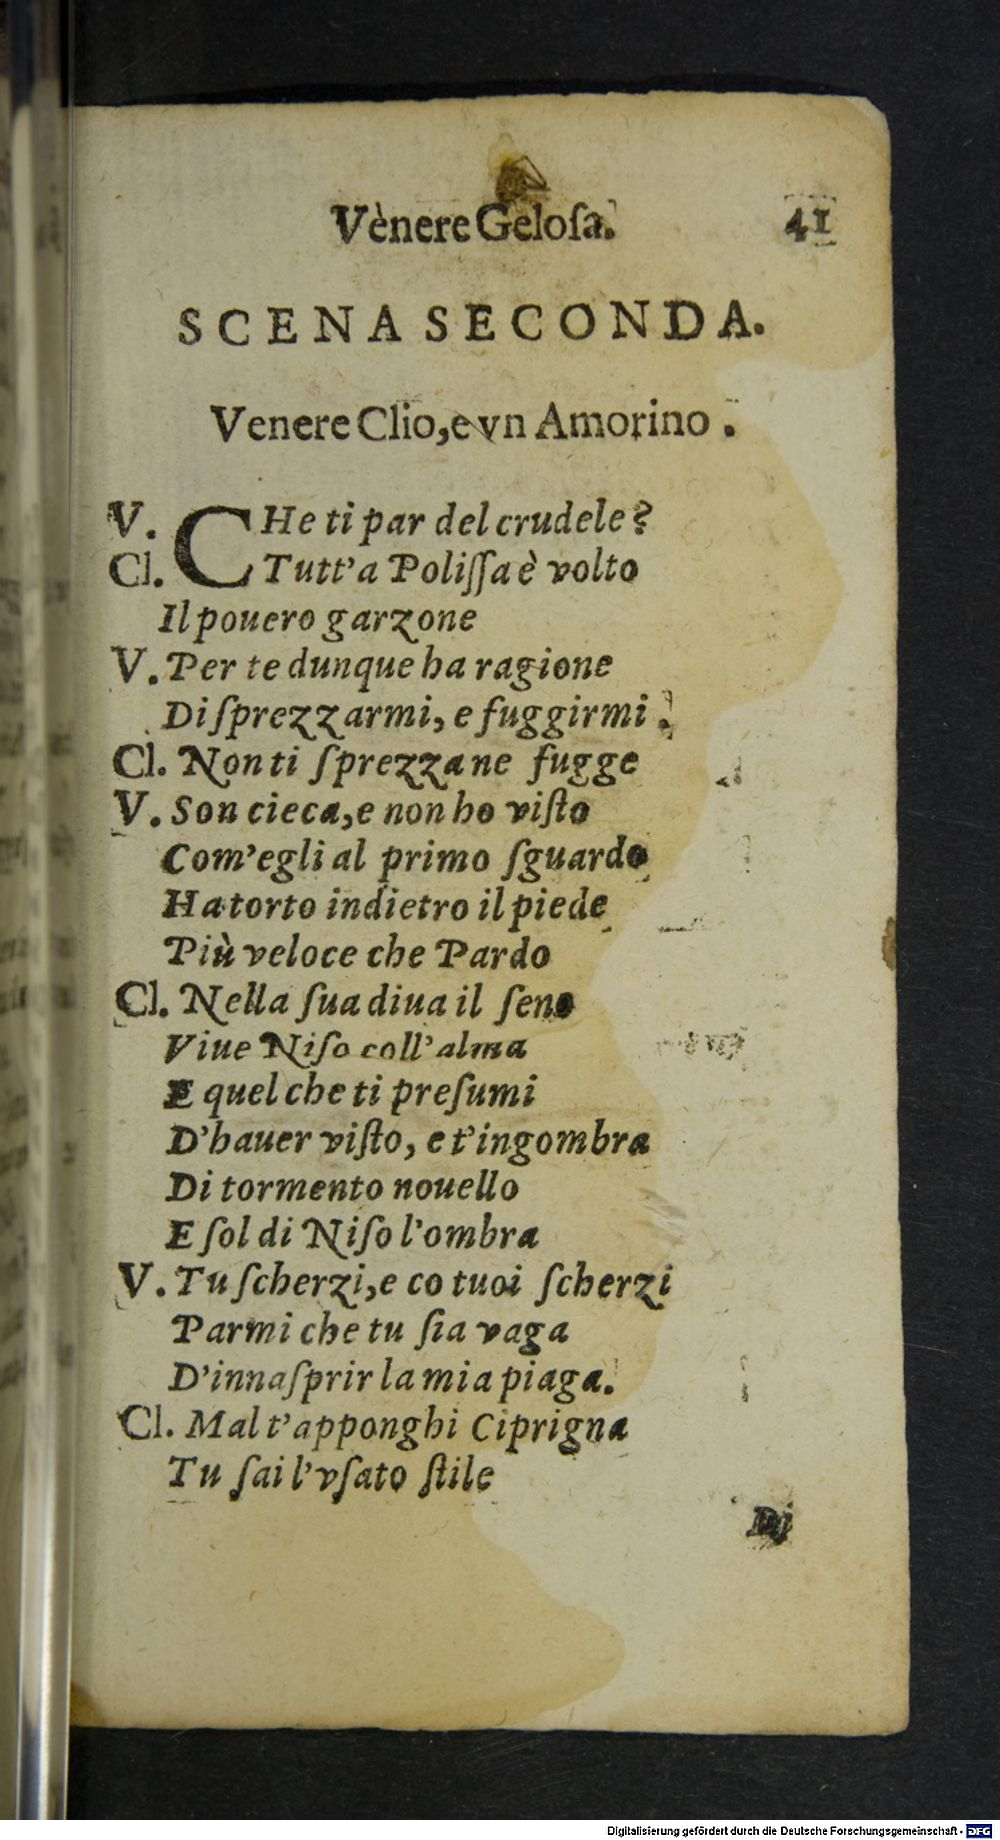 Vènere Geloſa. 41
SCENA SECONDA.
Venere Clio, e vn Amorino.
V. CHe ti par del crudele?
Cl. Tutt'a Poliſſa è volto
Il pouero garzone
V. Per te dunque ha ragione
Diſprezzarmi, e fuggirmi.
Cl. Non ti ſprezza ne fugge
V. Son cieca, e non ho viſto
Com'egli al primo ſguardo
Ha torto indietro il piede
Più veloce che Pardo
Cl. Nella ſua diua il ſeno
Viue Niſo coll'alma
E quel che ti preſumi
D'hauer viſto, e t'ingombra
Di tormento nouello
E ſol di Niſo l'ombra
V. Tu ſcherzi, e co tuoi ſcherzi
Parmi che tu ſia vaga
D'innaſprir la mia piaga.
Cl. Mal t'apponghi Ciprigna
Tu ſai l'vſato ſtile
Di
Digitalisierung gefördert durch die Deutsche Forschungsgemeinschaft - DFG